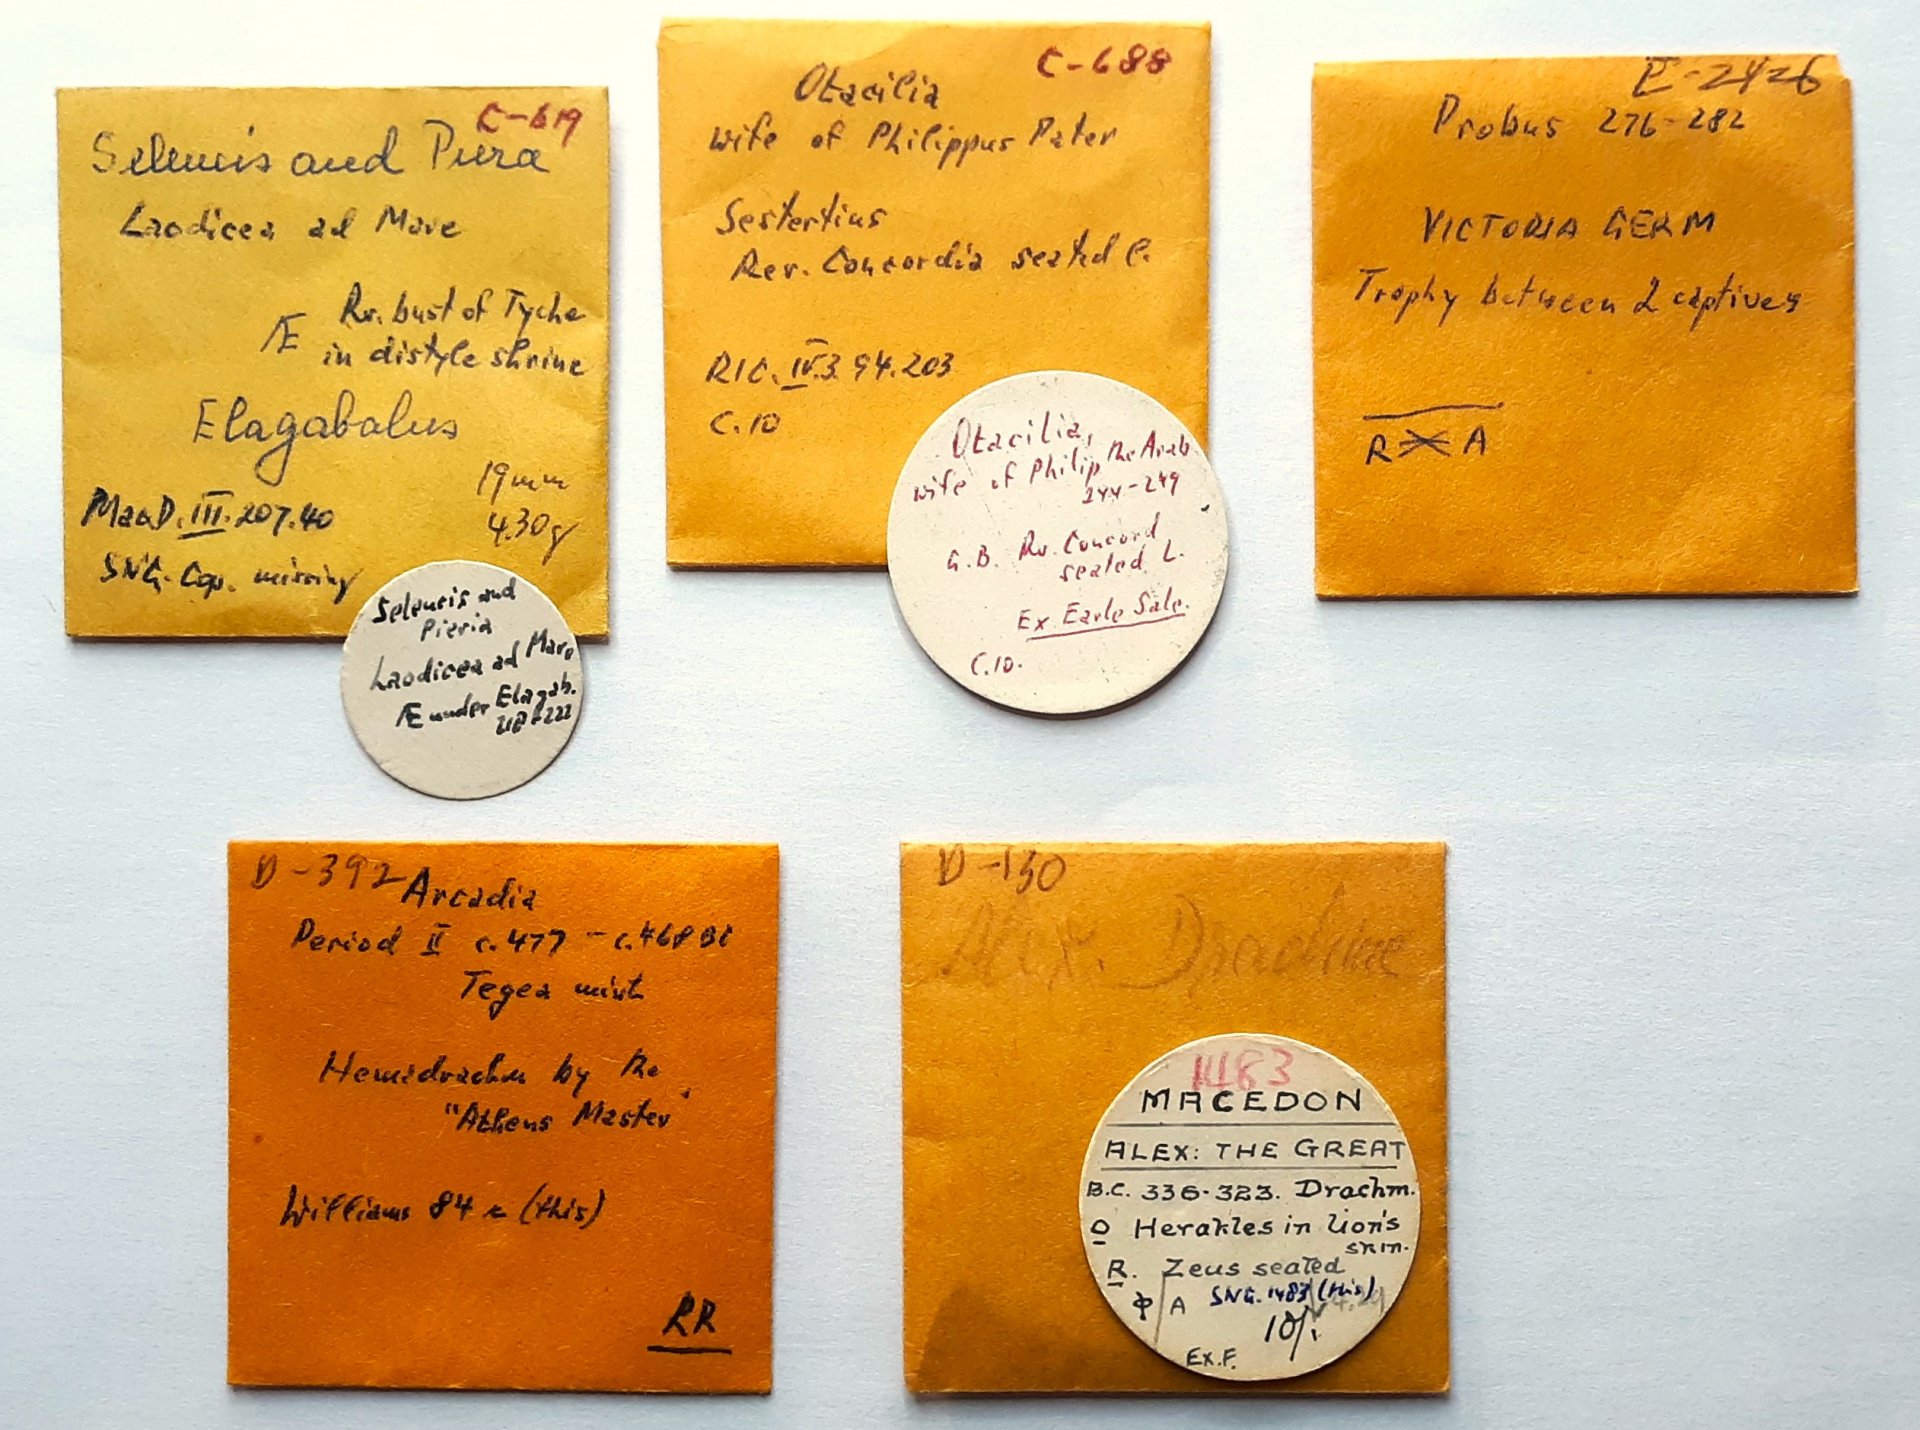 C-619
Seleucis and Piera
Laodicea ad Mare
Æ Rv. bust of Tyche
in distyle shrine
Elagabalus
19mm
MacD. III. 207.40
4.30g
SNG. Cop. missing
Seleucis and
Pieria
Laodicea ad Mare
Æ under Elagab.
218-222
C-688
Otacilia
wife of Philippus Pater
Sestertius
Rev. Concordia seated l.
RIC. IV.3. 94.203
C. 10
Otacilia,
wife of Philip the Arab
244-249
G.B. Rv. Concord
seated L.
Ex Earle Sale.
C.10.
E-2426
Probus 276-282
VICTORIA GERM
Trophy between 2 captives
R A
D-392
Arcadia
Period II c.477 - c.468 BC
Tegea mint
Hemidrachm by the
"Athens Master"
Williams 84 (this)
RR
D-130
Alex. Drachme
1483
MACEDON
ALEX: THE GREAT
B.C. 336-323. Drachm.
O Herakles in lion's
skin.
R. Zeus seated
A SNG. 1483 (this)
4.29
10/.
Ex.F.